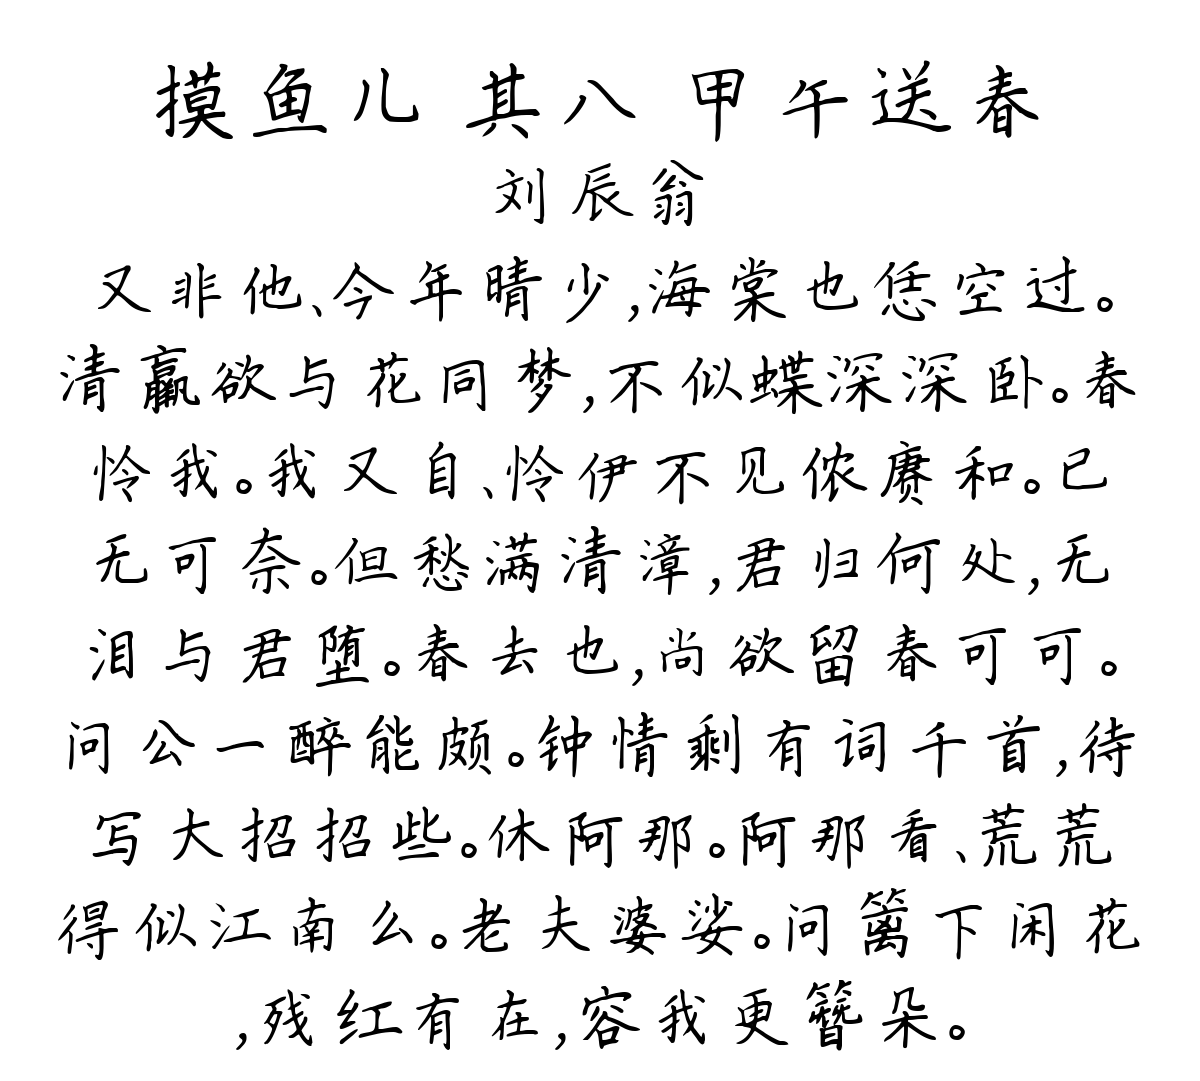 摸鱼儿 其八 甲午送春
刘辰翁
又非他、今年晴少,海棠也恁空过。
清羸欲与花同梦,不似蝶深深卧。春
怜我。我又自、怜伊不见侬赓和。已
无可奈。但愁满清漳,君归何处,无
泪与君堕。春去也,尚欲留春可可。
问公一醉能颇。钟情剩有词千首,待
写大招招些。休阿那。阿那看、荒荒
得似江南么。老夫婆娑。问篱下闲花
,残红有在,容我更簪朵。